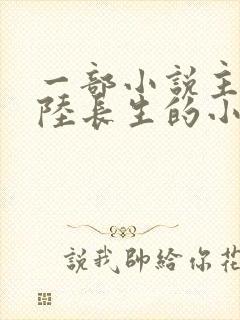 一部小説主
陸長生的小
説我帥給你花